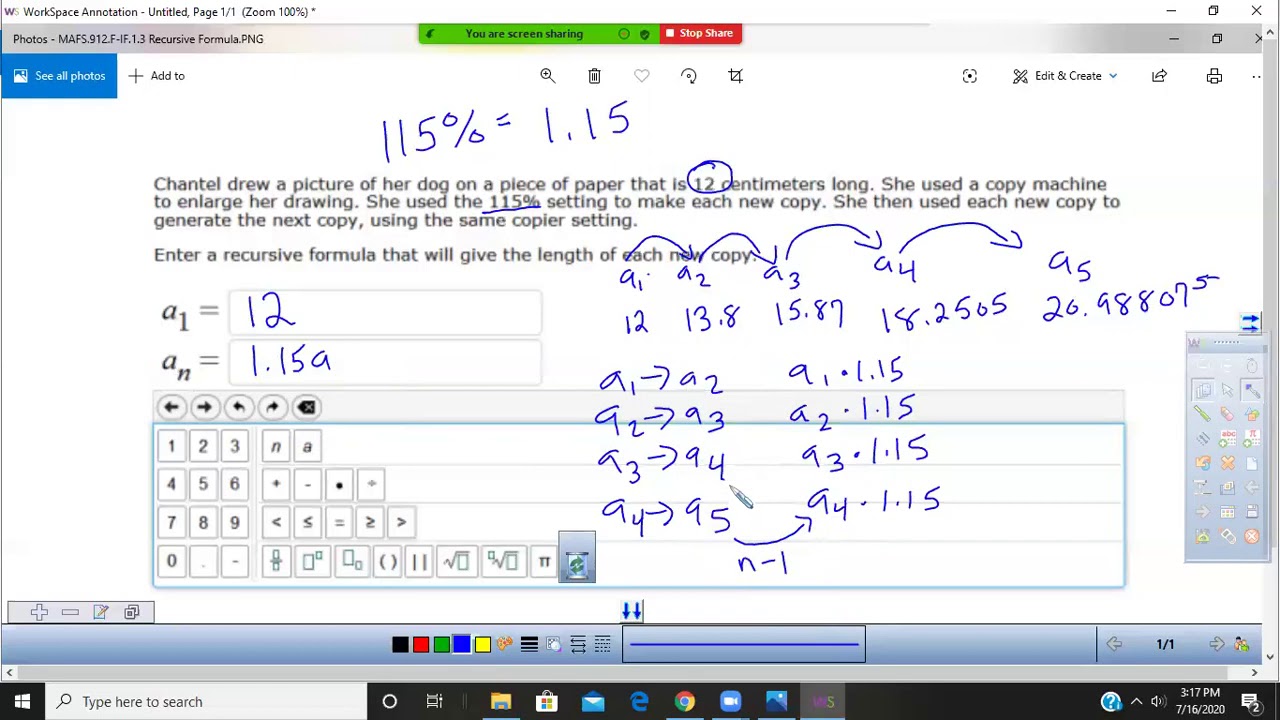 WS WorkSpace Annotation - Untitled, Page 1/1 (Zoom 100%) *
Photos - MAFS.912.F-IF.1.3 Recursive Formula.PNG
You are screen sharing
Stop Share
See all photos
Add to
Edit & Create
115% = 1.15
Chantel drew a picture of her dog on a piece of paper that is 12 centimeters long. She used a copy machine
to enlarge her drawing. She used the 115% setting to make each new copy. She then used each new copy to
generate the next copy, using the same copier setting.
Enter a recursive formula that will give the length of each new copy.
a₁ a₂ a₃ a₄ a₅
12 13.8 15.87 18.2505 20.988075
a₁ = 12
aₙ = 1.15a
a₁ → a₂ a₁ · 1.15
a₂ → a₃ a₂ · 1.15
a₃ → a₄ a₃ · 1.15
a₄ → a₅ a₄ · 1.15
n-1
1 2 3 n a
4 5 6 + - • ÷
7 8 9 < ≤ = ≥ >
0 . - ( ) | | √ π
WS
abc
π
1/1
Type here to search
WS
3:17 PM
7/16/2020
2